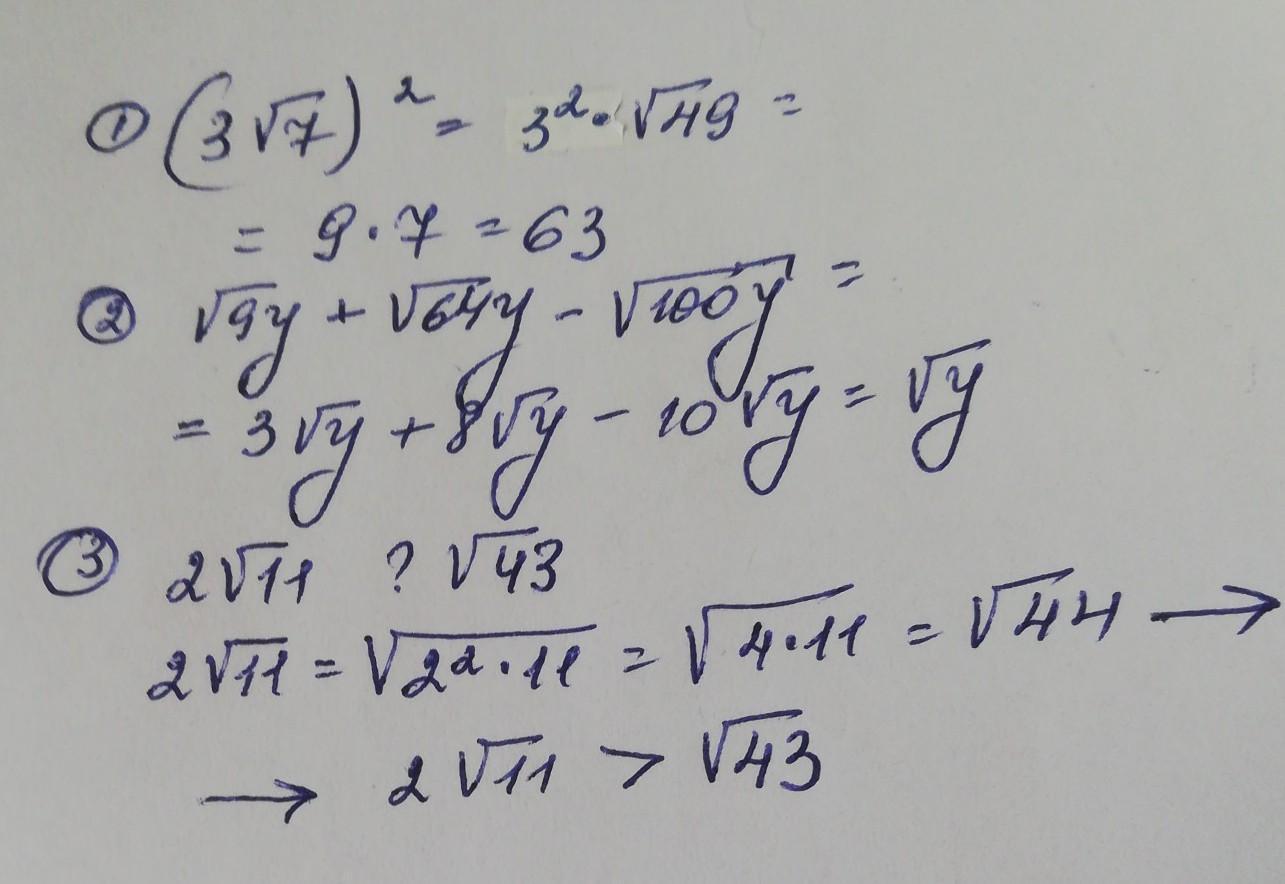 ① (3√7)² = 3² · √49 =
= 9 · 7 = 63
② √9y + √64y - √100y =
= 3√y + 8√y - 10√y = √y
③ 2√11 ? √43
2√11 = √2² · 11 = √4 · 11 = √44 →
→ 2√11 > √43